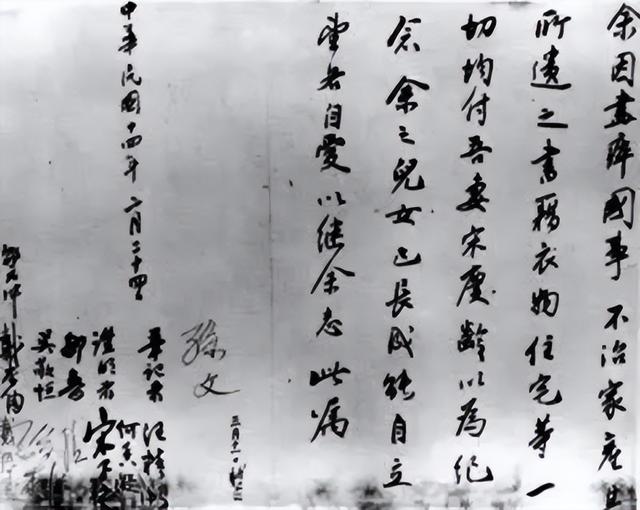 余因盡瘁國事 不治家產其
所遺之書籍衣物住宅等一
切均付吾妻宋慶齡以為紀
念 余之兒女已長成能自立
望各自愛以繼余志此屬
孫文
三月十一日補簽
中華民國十四年二月二十四日
筆記者 汪精衛
何香凝
證明者 宋子文
鄒魯
吳敬恆
邵元沖 戴恩賽